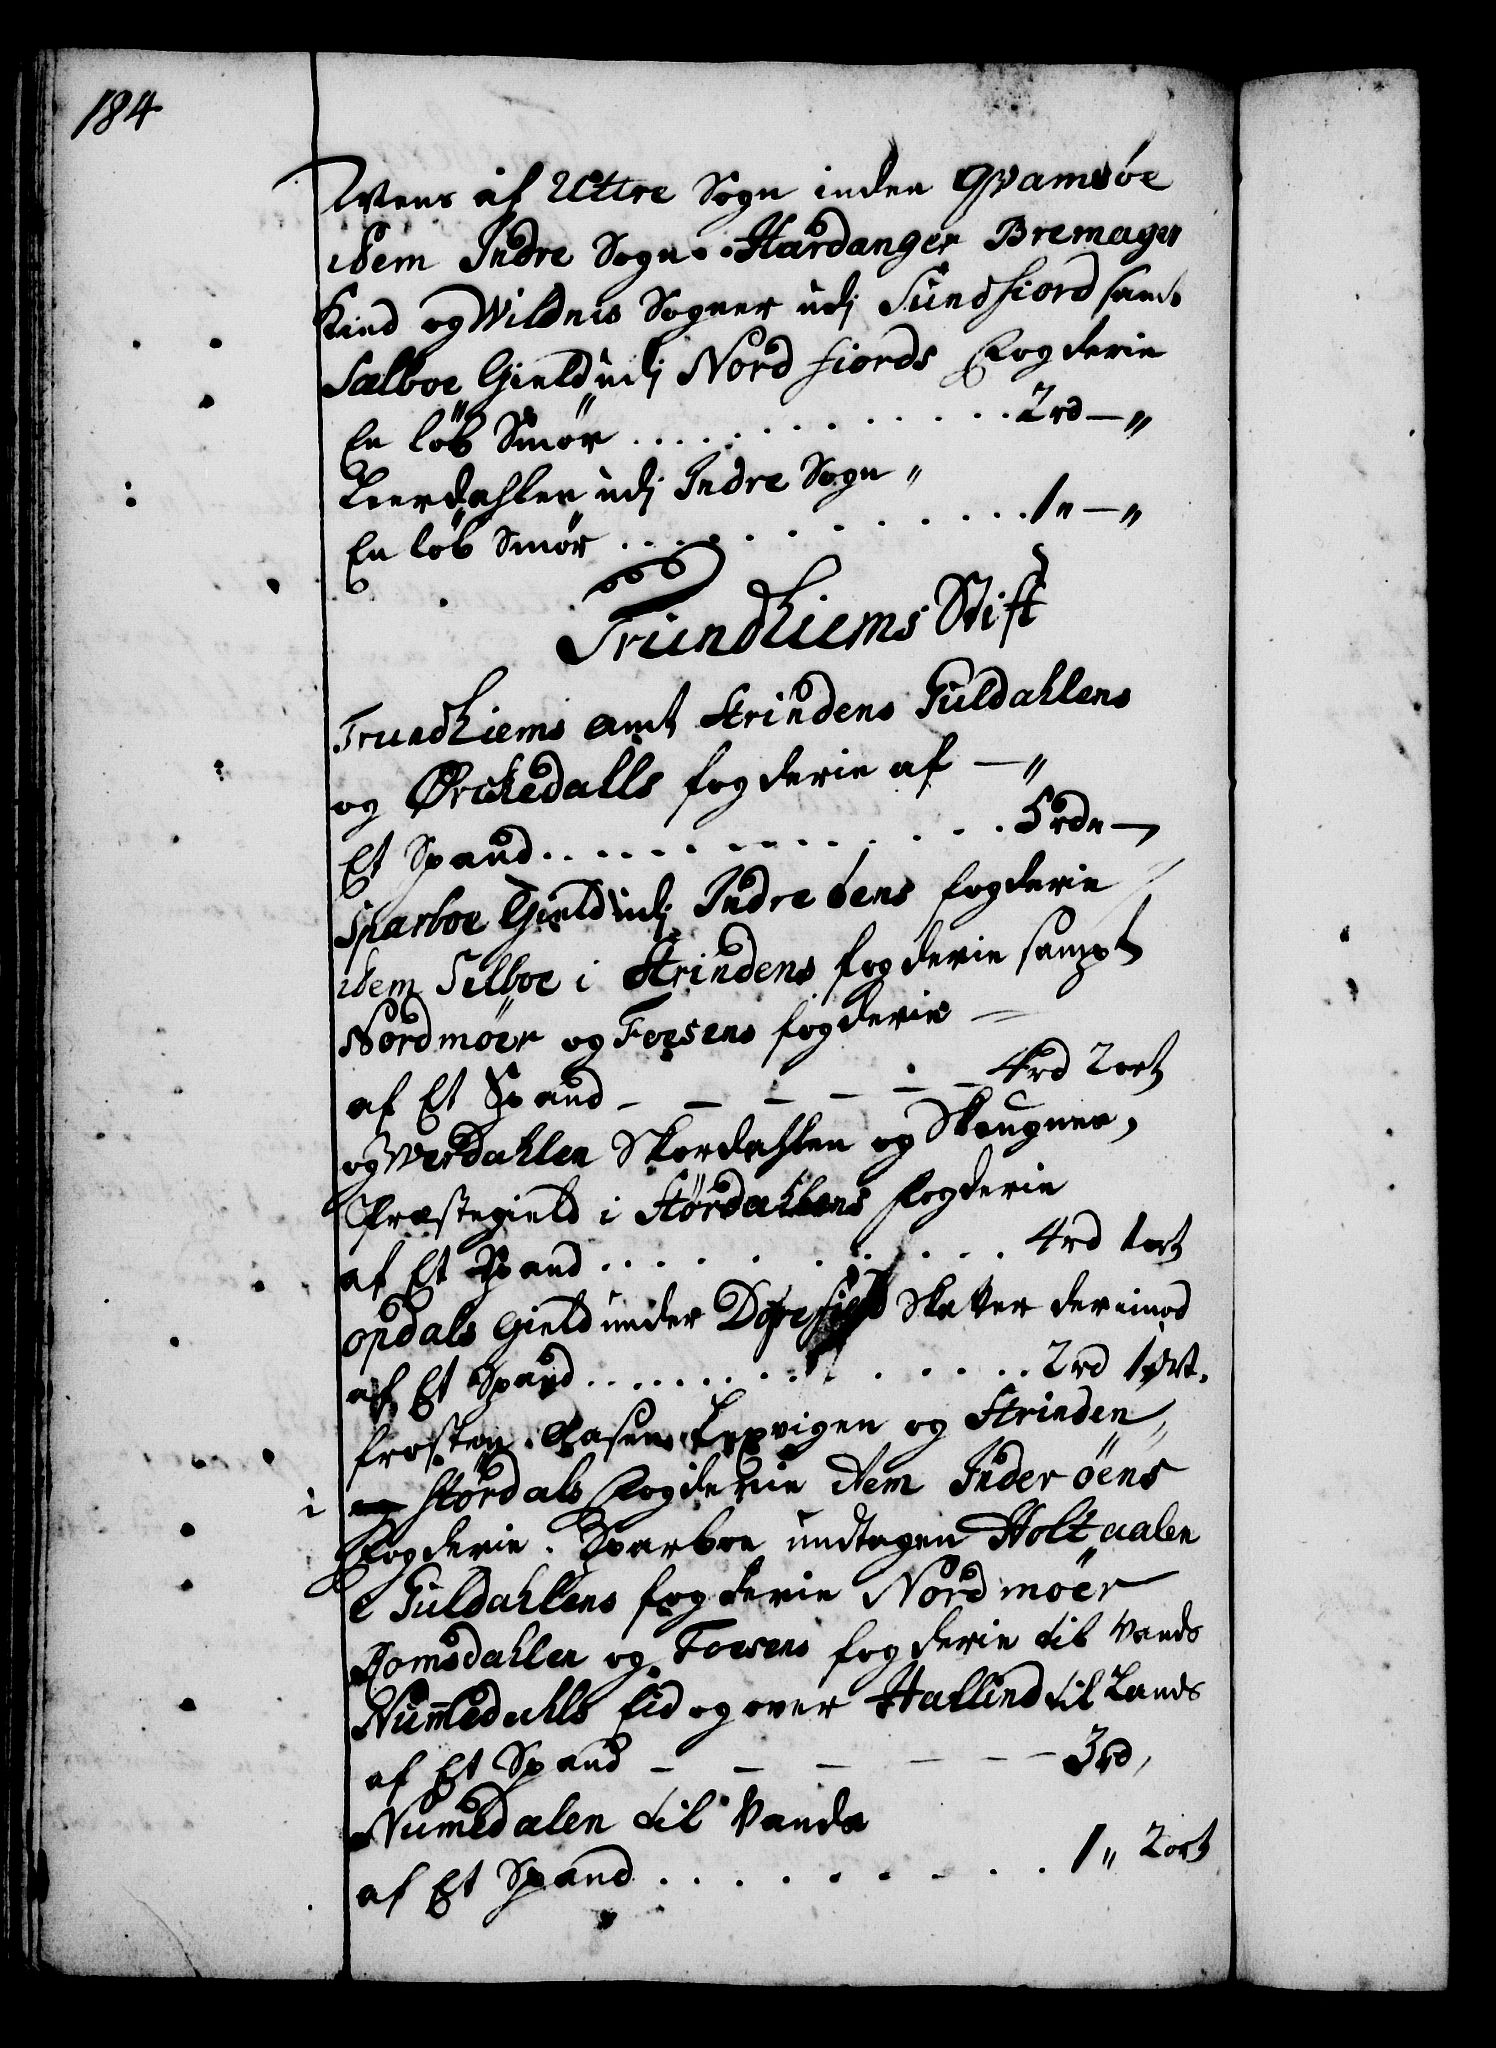 184
Wens af Uttre Sogn inden Qvamsøe
idem Indre Sogn. Hardanger Bremager
Kind og Wildnis Sogner udj Sundfiord samt
Sælboe Gield udj Nord fiords Fogderie
En löb Smör . . . . . . . . . . . 2rd — "
Lierdahlen udj Indre Sogn "
En löb Smör . . . . . . . . . . . 1 " — "
Trundhiems Stift
Trundhiems amt Strindens Guldahlens
og Ørckedalls fogderie af — "
Et Spand . . . . . . . . . . . . 5rdr —
Sparboe Gield udj Indre öens fogderie
idem Selboe i Strindens fogderie sampt
Nordmöer og Foesens fogderie —
af Et Spand — — — — — — 4rd 2ort
og Werdahlen Skordahlen og Skougnes,
Præstegield i Stördahlens fogderie
af Et Spand . . . . . . . . . . 4rd 1ort
opdals Gield under Dofre field Skatter derimod
af Et Spand . . . . . . . . . . . 2rd 1ort.
frosten Aasen Lexvigen og Strinden
i Stördals fogderie idem Inder öens
Fogderie. Sparboe undtagen Holtaalen
i Guldahlens fogderie Nordmöer
Romsdahlen og Foesens fogderie til Vands
Nummedahls Eid og over Hallind til Lands
af Et Spand — — — — — — 3rd,
Numedalen til Vands
af Et Spand . . . . . . . . . 1 " 2ort